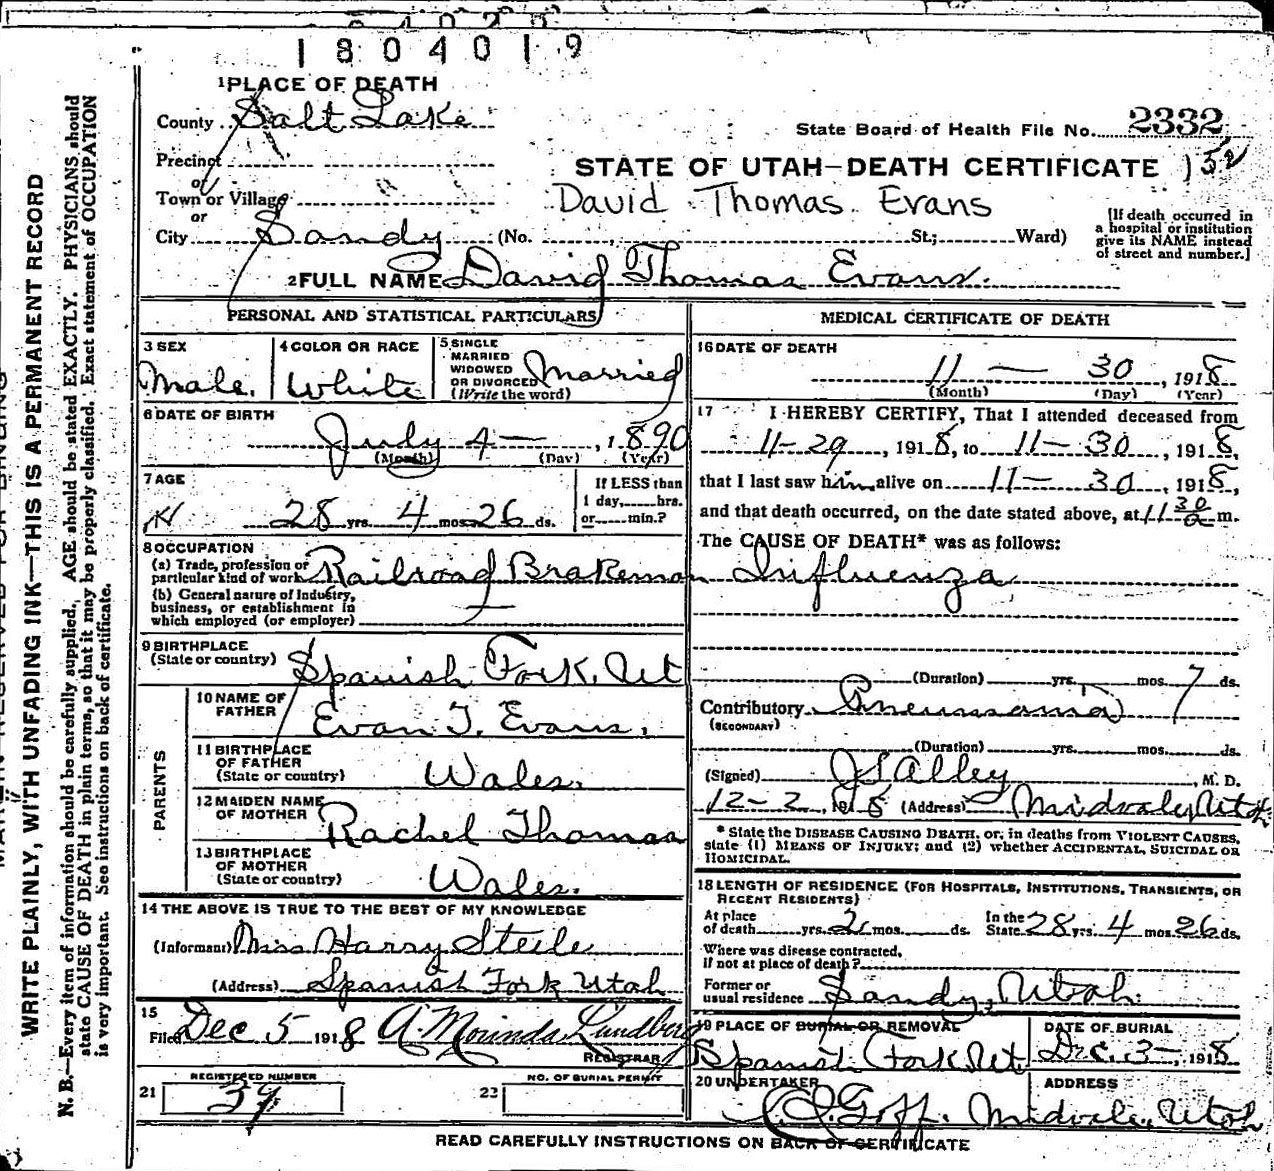 1804019
1 PLACE OF DEATH
County Salt Lake
State Board of Health File No. 2332
Precinct
or
STATE OF UTAH—DEATH CERTIFICATE 152
Town or Village
David Thomas Evans
or
City Sandy (No. , St.; Ward)
[If death occurred in
a hospital or institution
give its NAME instead
of street and number.]
2 FULL NAME David Thomas Evans.
WRITE PLAINLY, WITH UNFADING INK—THIS IS A PERMANENT RECORD
N. B.—Every item of information should be carefully supplied. AGE should be stated EXACTLY. PHYSICIANS should
state CAUSE OF DEATH in plain terms, so that it may be properly classified. Exact statement of OCCUPATION
is very important. See instructions on back of certificate.
PERSONAL AND STATISTICAL PARTICULARS
3 SEX
Male.
4 COLOR OR RACE
White
5 SINGLE
MARRIED
WIDOWED
OR DIVORCED
(Write the word)
Married
6 DATE OF BIRTH
July 4— , 1890
(Month) (Day) (Year)
7 AGE
28 yrs. 4 mos. 26 ds.
If LESS than
1 day, hrs.
or min.?
8 OCCUPATION
(a) Trade, profession or
particular kind of work Railroad Brakeman
(b) General nature of Industry,
business, or establishment in
which employed (or employer) —
9 BIRTHPLACE
(State or country) Spanish Fork, Ut
PARENTS
10 NAME OF
FATHER Evan T. Evans.
11 BIRTHPLACE
OF FATHER
(State or country) Wales.
12 MAIDEN NAME
OF MOTHER Rachel Thomas
13 BIRTHPLACE
OF MOTHER
(State or country) Wales.
14 THE ABOVE IS TRUE TO THE BEST OF MY KNOWLEDGE
(Informant) Miss Harry Steele
(Address) Spanish Fork Utah
15
Filed Dec 5 1918 A. Mourinda Lundberg
REGISTRAR
REGISTERED NUMBER
21 39
NO. OF BURIAL PERMIT
23
MEDICAL CERTIFICATE OF DEATH
16 DATE OF DEATH
11 — 30 , 1918
(Month) (Day) (Year)
17 I HEREBY CERTIFY, That I attended deceased from
11-29 , 1918, to 11-30 , 1918,
that I last saw him alive on 11-30 , 1918,
and that death occurred, on the date stated above, at 11 30 a m.
The CAUSE OF DEATH* was as follows:
Influenza
(Duration) yrs. mos. 7 ds.
Contributory Pneumonia
(SECONDARY)
(Duration) yrs. mos. ds.
(Signed) J S Alley , M. D.
12-2, 1918 (Address) Midvale, Utah
* State the DISEASE CAUSING DEATH, or, in deaths from VIOLENT CAUSES,
state (1) MEANS OF INJURY; and (2) whether ACCIDENTAL, SUICIDAL OR
HOMICIDAL.
18 LENGTH OF RESIDENCE (FOR HOSPITALS, INSTITUTIONS, TRANSIENTS, OR
RECENT RESIDENTS)
At place
of death yrs. 2 mos. ds.
In the
State 28 yrs. 4 mos. 26 ds.
Where was disease contracted,
if not at place of death?
Former or
usual residence Sandy, Utah.
19 PLACE OF BURIAL OR REMOVAL
Spanish Fork Ut.
DATE OF BURIAL
Dec. 3 — , 1918
20 UNDERTAKER
Goff.
ADDRESS
Midvale, Utah
READ CAREFULLY INSTRUCTIONS ON BACK OF CERTIFICATE